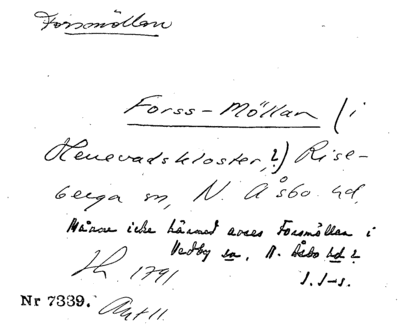 Forsmöllan
Forss-Möllan (i
Herrevadskloster,?) Rise-
berga sn, N. Åsbo hd,
Månne icke härmed avses Forsmöllan i
Vedby sn, N. Åsbo hd?
1791.
J. J-s.
Nr 7339.